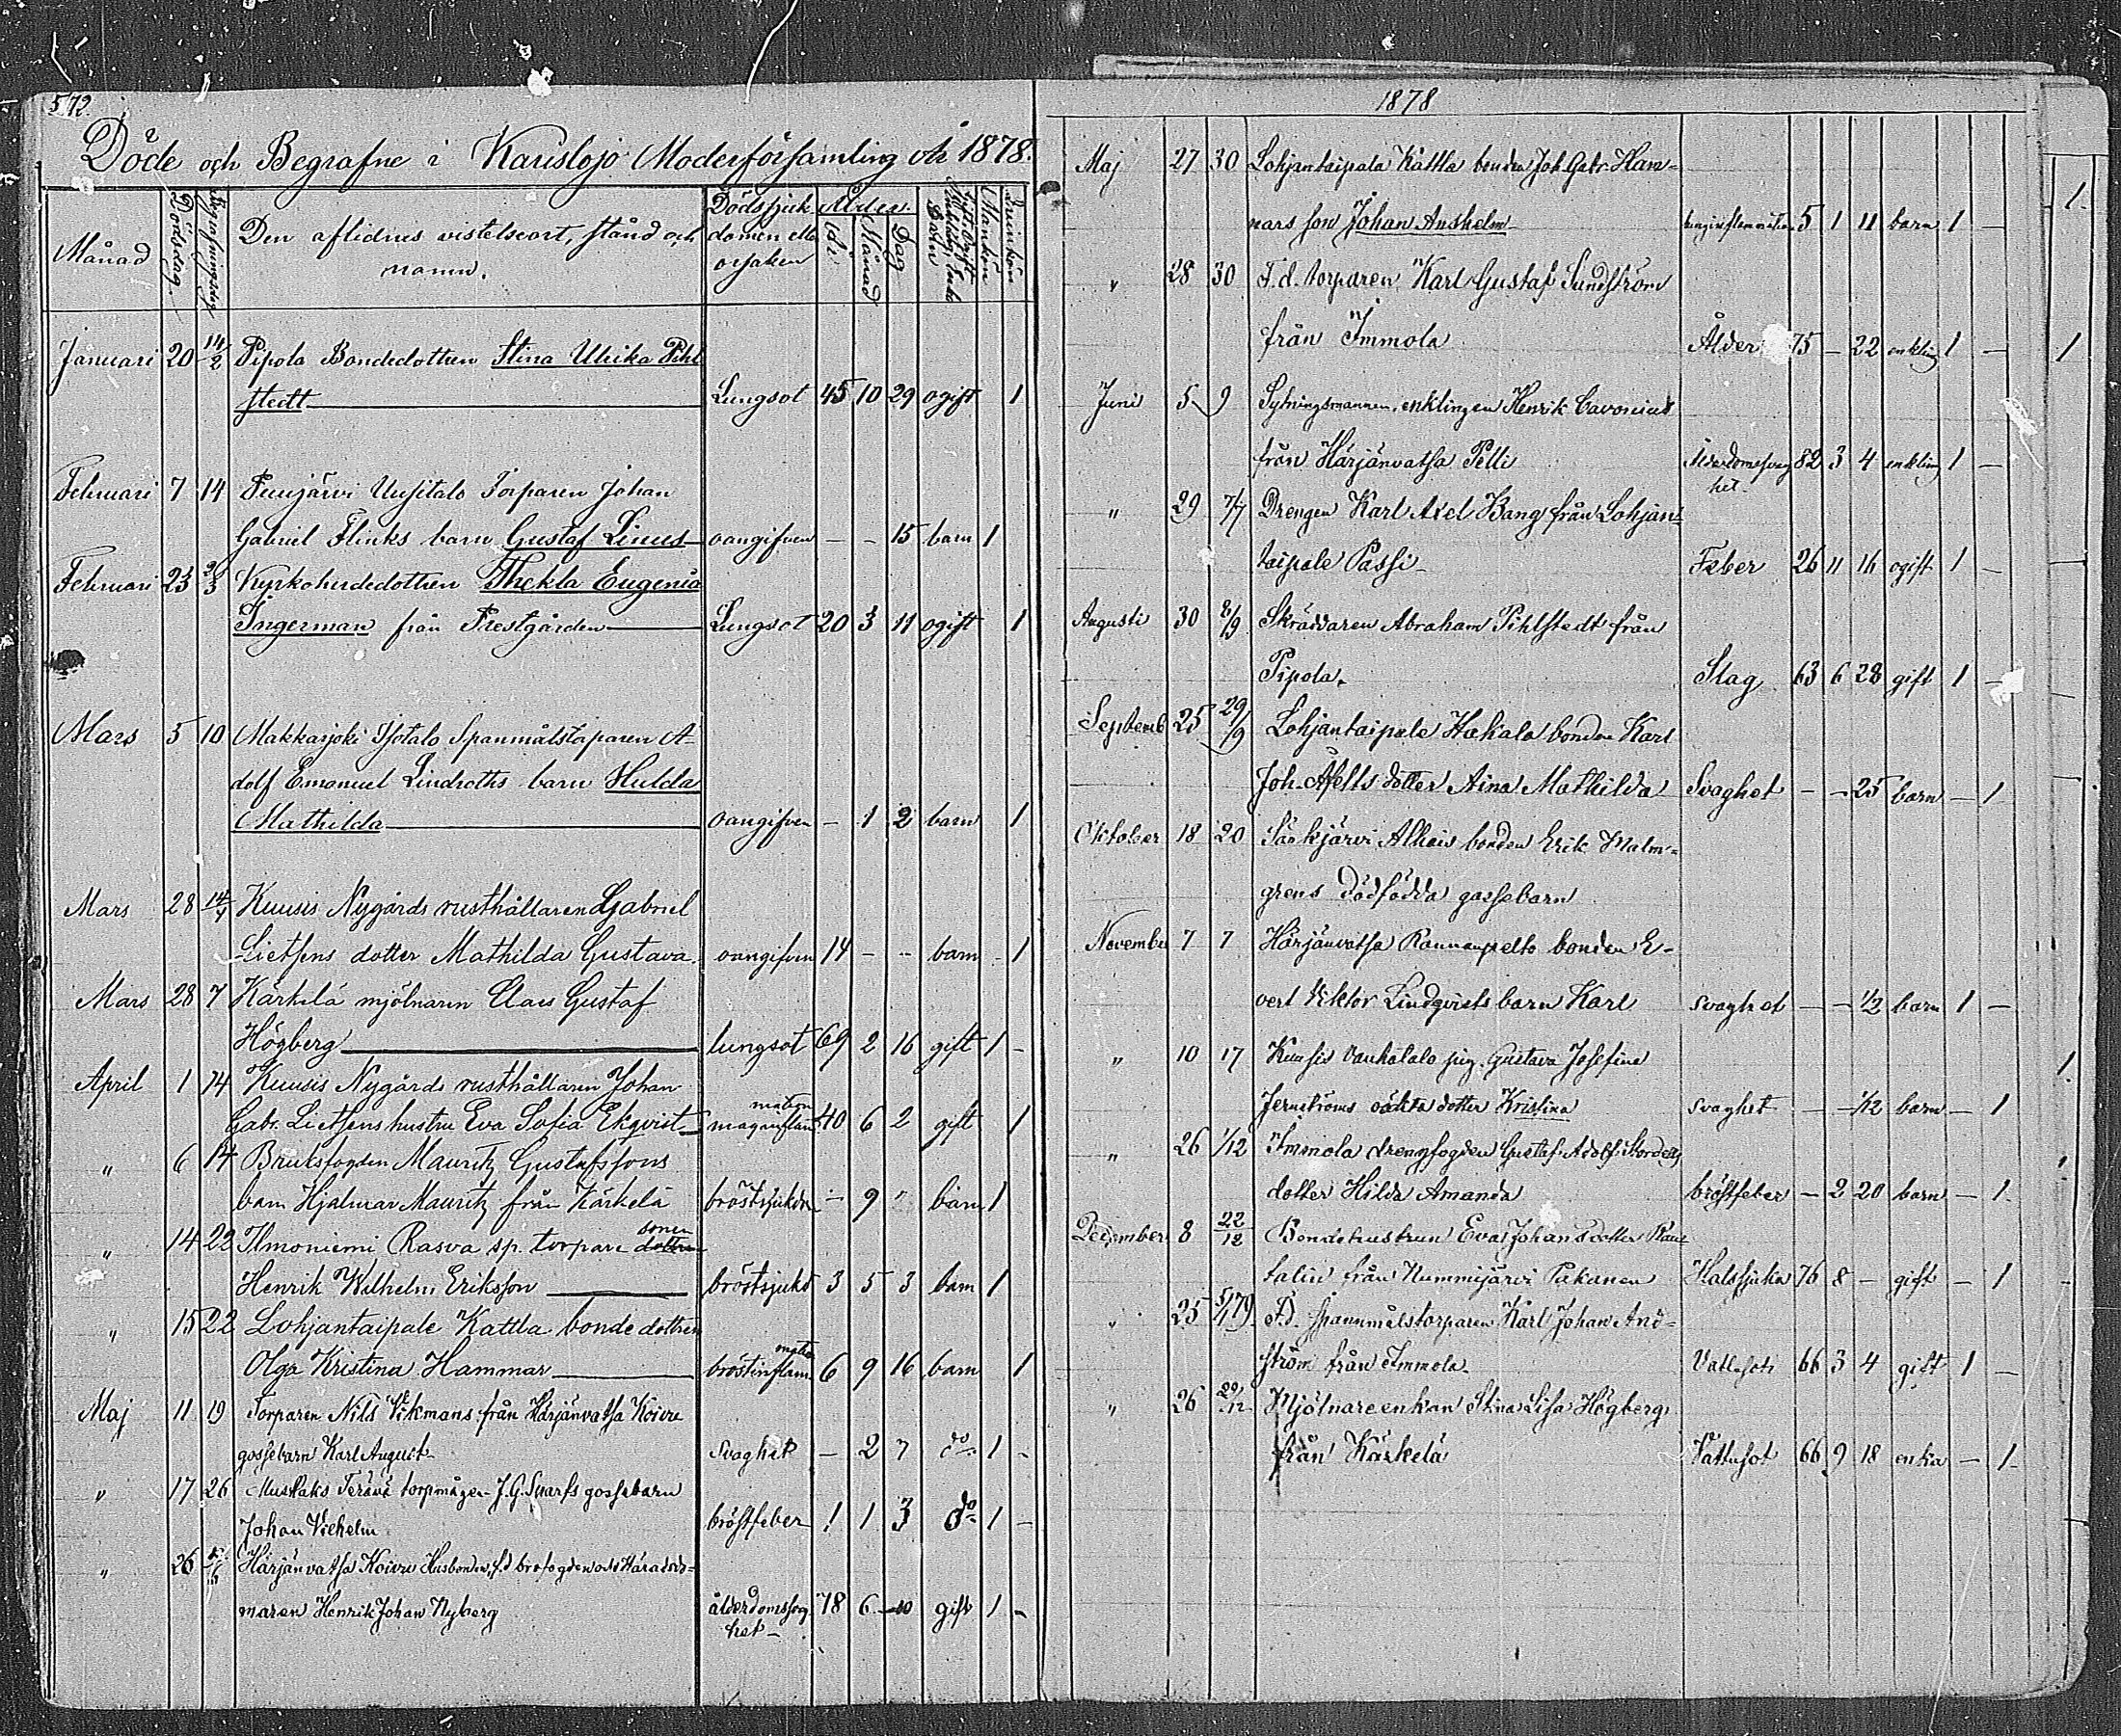 572.
Döde och Begrafne i Karislojo Moderförsamling år 1878.
Månad Dödsdag. Begrafningsdag Den aflidnes vistelseort, stånd och namn. Dödssjukdomen eller orsaken Ålder. År Månad Dag Barn Mankön Qvinkön
Januari 20 14/2 Pipola Bondedottren Stina Ulrika Pihl
stedt Lungsot 45 10 29 ogift 1
Februari 7 14 Puujärvi Uusitalo Torparen Johan
Gabriel Flinks barn Gustaf Linus oangifven - - 15 barn 1
Februari 23 2/3 Kyrkoherdedottren Thekla Eugenia
Ingerman från Prestgården Lungsot 20 3 11 ogift 1
Mars 5 10 Makkarjoki Isotalo Spanmålstorparen A-
dolf Emanuel Lindroths barn Hulda
Mathilda oangifven - 1 2 barn 1
Mars 28 14/4 Kuusis Nygårds rusthållaren Gabriel
Lietsens dotter Mathilda Gustava. oangifven 14 - - barn - 1
Mars 28 7 Kärkelä mjölnaren Claes Gustaf
Högberg lungsot 69 2 16 gift 1 -
April 1 14 Kuusis Nygårds rusthållaren Johan
Gabr. Lietsens hustru Eva Sofia Ekqvist magainflammation 40 6 2 gift 1
" 6 14 Bruksfogden Mauritz Gustafssons
barn Hjalmar Mauritz från Kärkelä bröstsjukdom - 9 " barn 1
" 14 22 Ilmoniemi Rasva sp. torpare dottren sonen
Henrik Wilhelm Eriksson bröstsjukd 3 5 3 barn 1
" 15 22 Lohjantaipale Kattla bonde dottren
Olga Kristina Hammar bröstinflammation 6 9 16 barn 1
Maj 11 19 Torparen Nils Vikmans från Härjänvatsa Koivu
gossebarn Karl August Svaghet - 2 7 do 1 -
" 17 26 torpmågen J.G. Skarfs gossebarn
Johan Vilhelm bröstfeber 1 1 3 do 1 -
" 26 Härjänvatsa Koivu Husbonden, f.d. brofogden och Häradsdo-
maren Henrik Johan Nyberg ålderdomssvag
het 78 6 10 gift 1 -
1878
Maj 27 30 Lohjantaipala Kattla bonden Joh. Gabr. Ham-
mars son Johan Anshelm lunginflammation 5 1 11 barn 1 -
" 28 30 F.d. torparen Karl Gustaf Sundström
från Immola Ålder 75 - 22 enkling 1 -
Juni 5 9 Sytningsmannen, enklingen Henrik Cavonius
från Härjänvatsa Pelli Ålderdomssvag
het 82 3 4 enkling 1 -
" 29 7/7 Drengen Karl Axel Bang från Lohjan-
taipale Passi Feber 26 11 16 ogift 1 -
Augusti 30 8/9 Skräddaren Abraham Pihlstedt från
Pipola. Slag 63 6 28 gift 1 -
Septemb 25 29/9 Lohjantaipale Hakala bonden Karl
Joh. Afells dotter Aina Mathilda Svaghet - - 25 barn - 1
Oktober 18 20 Särkjärvi Alhais bonden Erik Malm-
grens dödfödda gossebarn
November 7 7 Härjänvatsa Rannanpelto bonden E-
vert Viktor Lindqvists barn Karl svaghet - - 1/2 barn 1 -
" 10 17 Kuusis Vanhatalo pig. Gustava Josefina
Jernströms oäkta dotter Kristina svaghet - - 1/12 barn - 1
" 26 1/12 Immola drengfogden Gustaf Adolf
dotter Hilda Amanda bröstfeber - 2 20 barn - 1
December 8 22/12 Bondehustrun Eva Johansdotter
talin från Nummijärvi Pakanen Halssjuka 76 8 - gift - 1
" 25 5/1 79 F.d. spannmålstorparen Karl Johan And-
ström från Immola Vattusot 66 3 4 gift 1 -
" 26 29/12 Mjölnareenkan Stina Lisa Högberg
från Kärkelä Vattusot 66 9 18 enka - 1